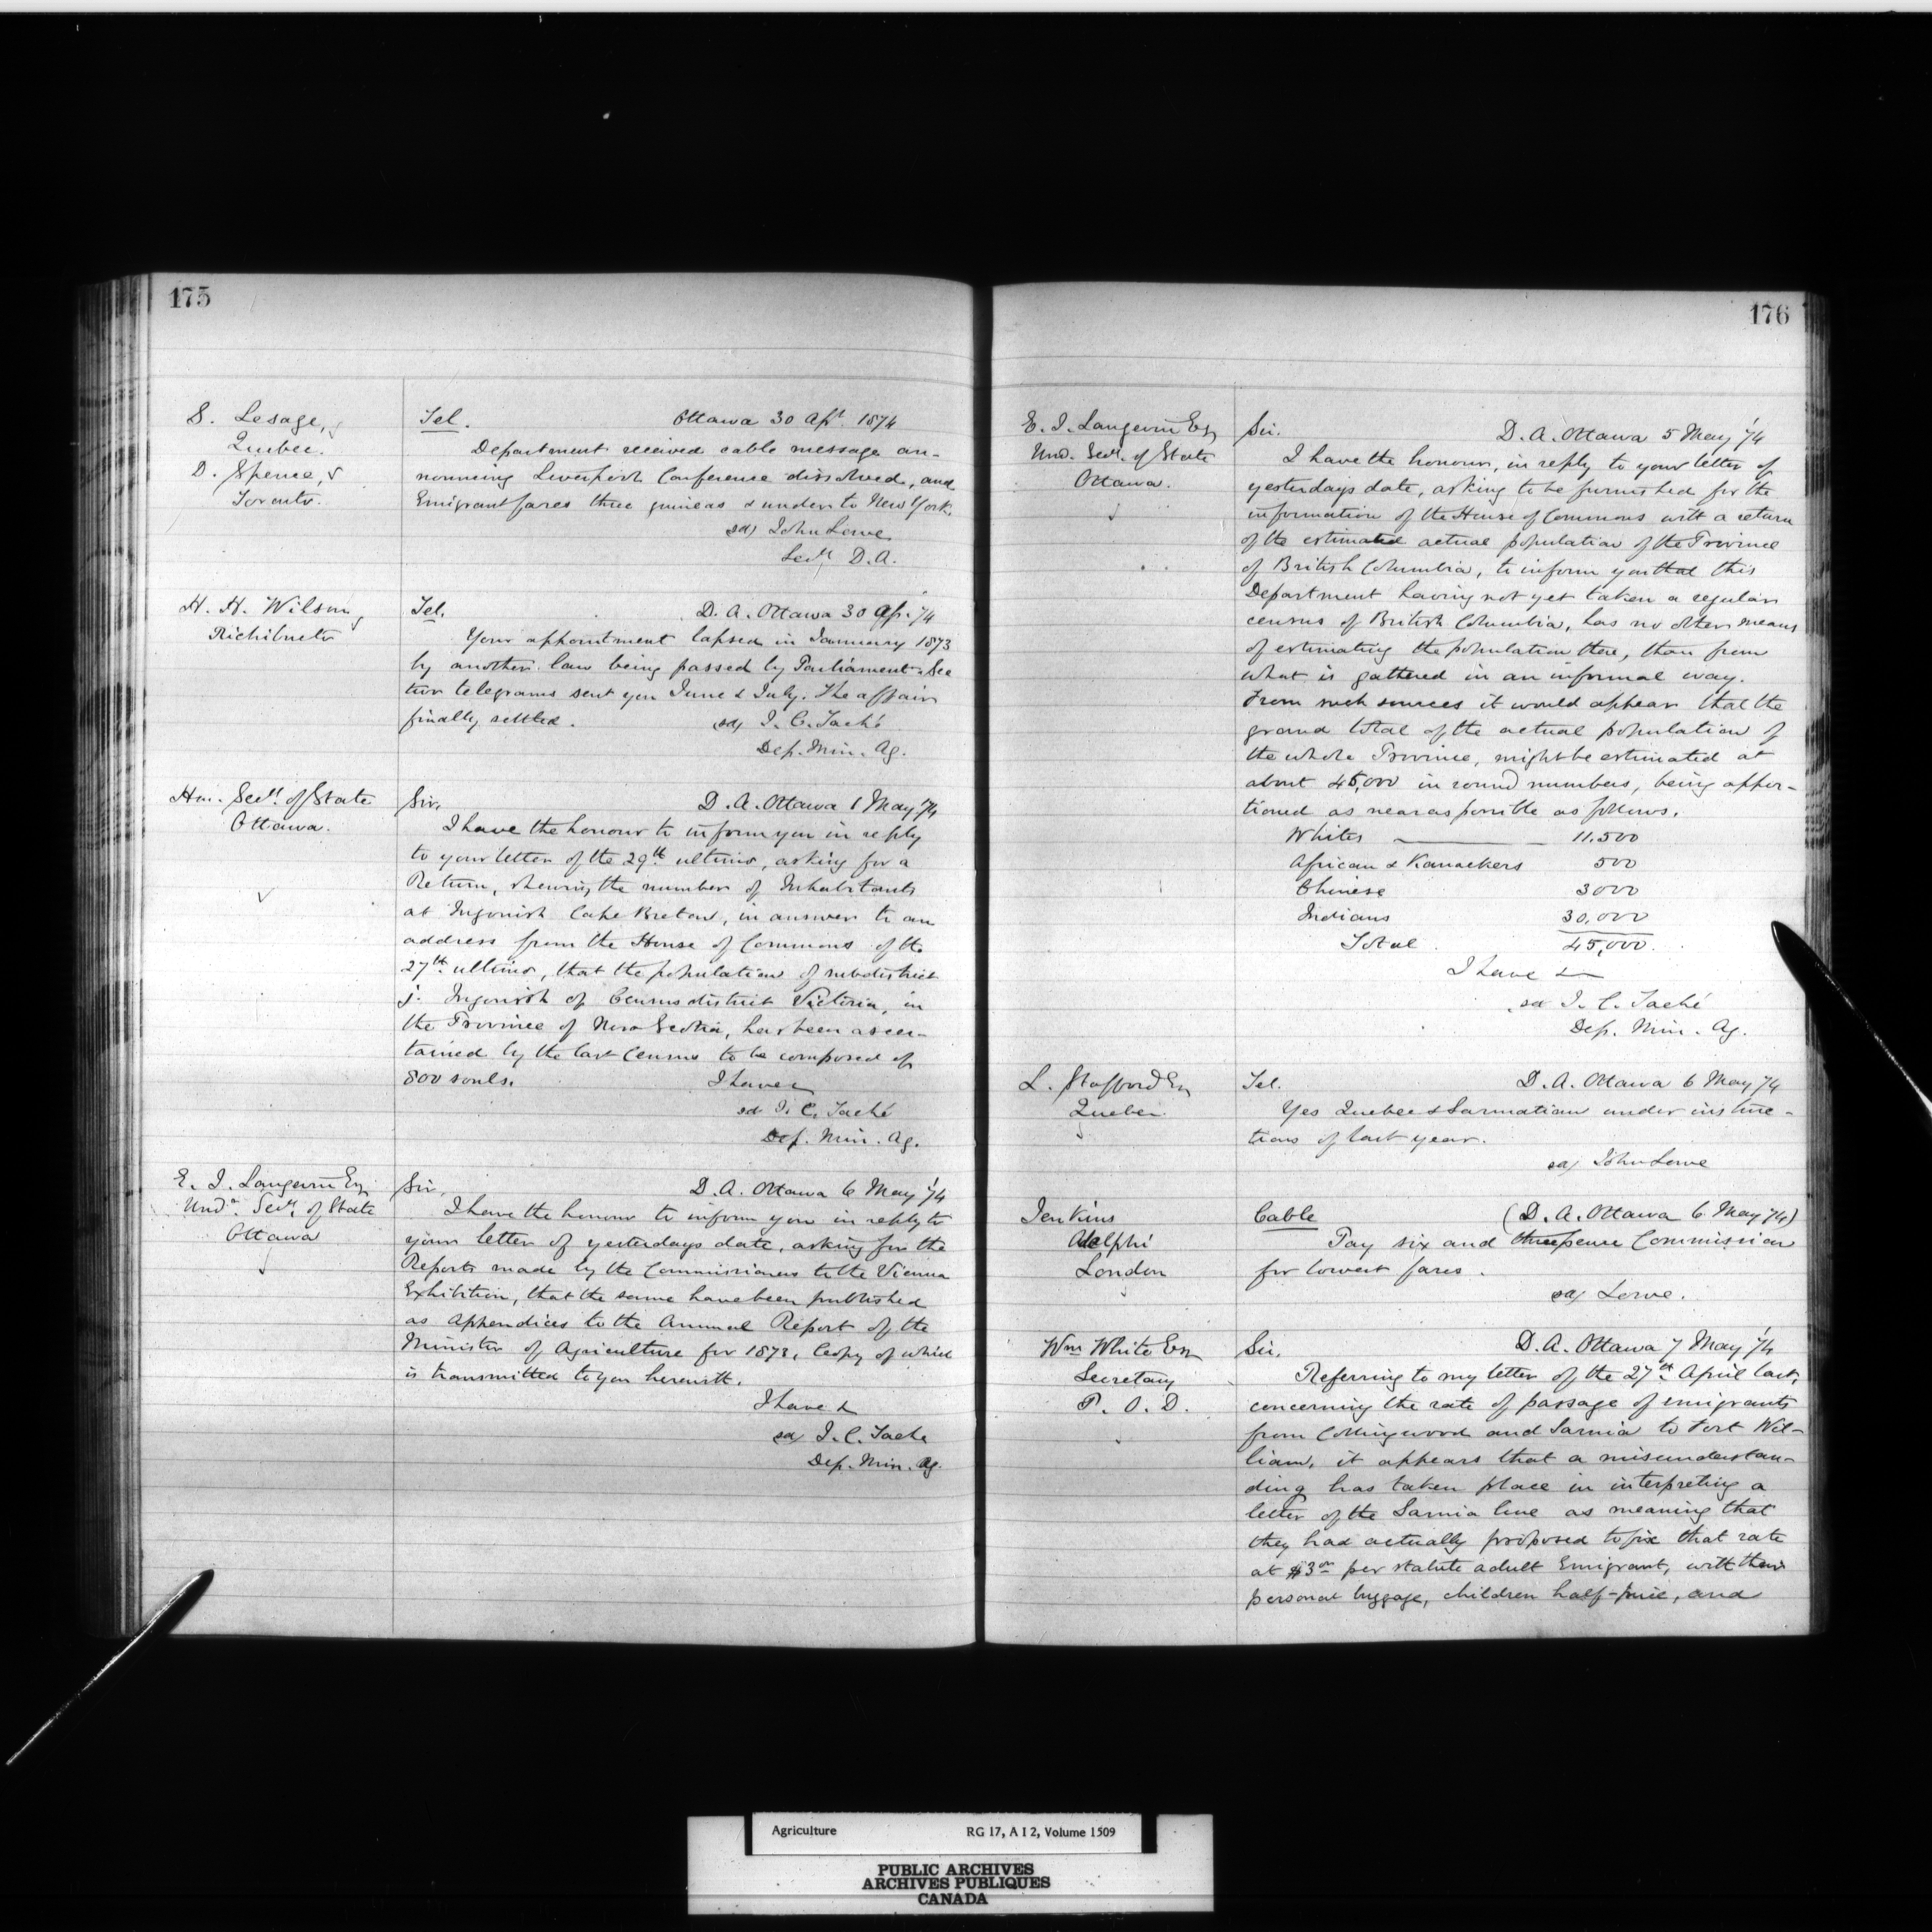 175
S. Lesage,
Quebec.
D. Spence,
Toronto.
Tel. Ottawa 30 Apl. 1874
Department received cable message an-
nouncing Liverpool Conference dissolved, and
Emigrant fares three guineas & under to New York.
sd) John Lowe
Secy. D.A.
H. H. Wilson
Richibucto
Tel. D. A. Ottawa 30 Ap. '74
Your appointment lapsed in January 1873
by another law being passed by Parliament. See
two telegrams sent you June & July. The affair
finally settled.
sd) J. C. Taché
Dep. Min. Ag.
Hon. Secy. of State
Ottawa.
Sir, D. A. Ottawa 1 May '74
I have the honour to inform you in reply
to your letter of the 29th. ultimo, asking for a
Return, shewing the number of Inhabitants
at Ingonish Cape Breton, in answer to an
address from the House of Commons of the
27th. ultimo, that the population of subdistrict
j. Ingonish of Census district Victoria, in
the Province of Nova Scotia, has been ascer-
tained by the last Census to be composed of
800 souls. I have &
sd J. C. Taché
Dep. Min. Ag.
E. J. Langevin Esq
Undr. Secy. of State
Ottawa
Sir, D. A. Ottawa 6 May '74
I have the honour to inform you in reply to
your letter of yesterdays date, asking for the
Reports made by the Commissioners to the Vienna
Exhibition, that the same have been published
as Appendices to the Annual Report of the
Minister of Agriculture for 1873, Copy of which
is transmitted to you herewith.
I have &
sd) J. C. Tache
Dep. Min. Ag.
176
E. J. Langevin Esq
Und. Secy. of State
Ottawa.
Sir. D. A. Ottawa 5 May '74
I have the honour, in reply to your letter of
yesterdays date, asking to be furnished for the
information of the House of Commons with a return
of the estimated actual population of the Province
of British Columbia, to inform you that this
Department having not yet taken a regular
census of British Columbia, has no other means
of estimating the population there, than from
what is gathered in an informal way.
From such sources it would appear that the
grand total of the actual population of
the whole Province, might be estimated at
about 45,000 in round numbers, being appor-
tioned as near as possible as follows.
Whites 11.500
African & Kanackers 500
Chinese 3000
Indians 30,000
Total 45,000.
I have &
sd J. C. Taché
Dep. Min. Ag.
L. Stafford Esq
Quebec
Tel. D. A. Ottawa 6 May '74
Yes Quebec & Sarmatian under instruc-
tions of last year.
sd) John Lowe
Jenkins
Adelphi
London
Cable (D. A. Ottawa 6 May 74)
Pay six and threepence Commission
for lowest fares.
sd) Lowe.
Wm White Esq
Secretary
P. O. D.
Sir, D. A. Ottawa 7 May '74
Referring to my letter of the 27th. April last,
concerning the rate of passage of emigrants
from Collingwood and Sarnia to Fort Wil-
liam, it appears that a misunderstan-
ding has taken place in interpreting a
letter of the Sarnia line as meaning that
they had actually proposed to fix that rate
at $3 per statute adult Emigrant, with their
personal luggage, children half-price, and
Agriculture RG 17, A I 2, Volume 1509
PUBLIC ARCHIVES
ARCHIVES PUBLIQUES
CANADA